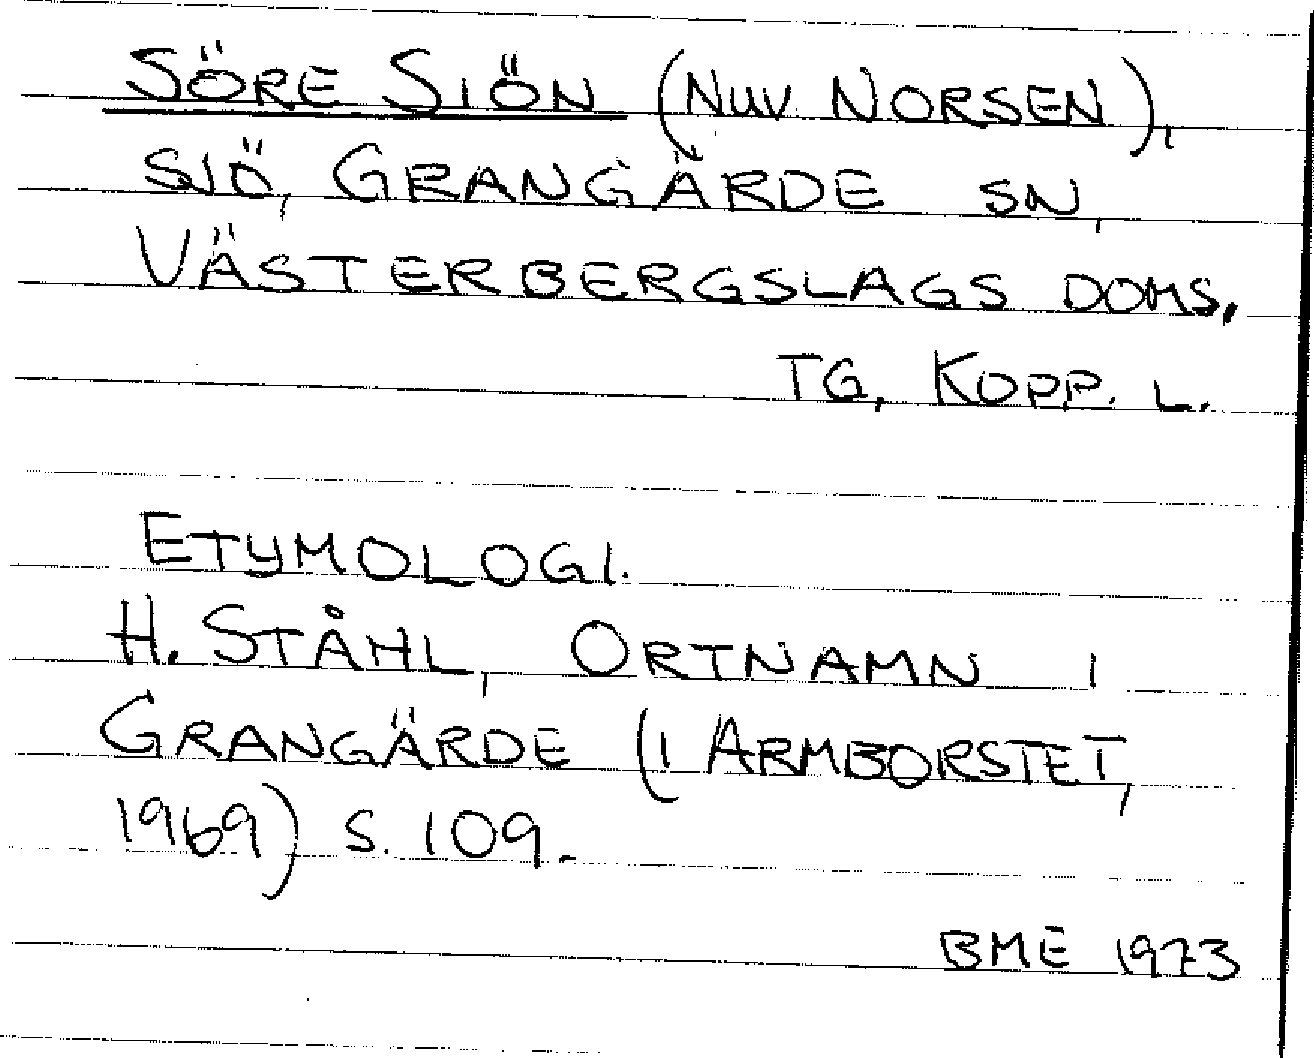 SÖRE SIÖN (NUV NORSEN),
SJÖ, GRANGÄRDE SN,
VÄSTERBERGSLAGS DOMS.
TG, KOPP. L.
ETYMOLOGI.
H. STÅHL, ORTNAMN I
GRANGÄRDE (I ARMBORSTET,
1969) S. 109.
BME 1973